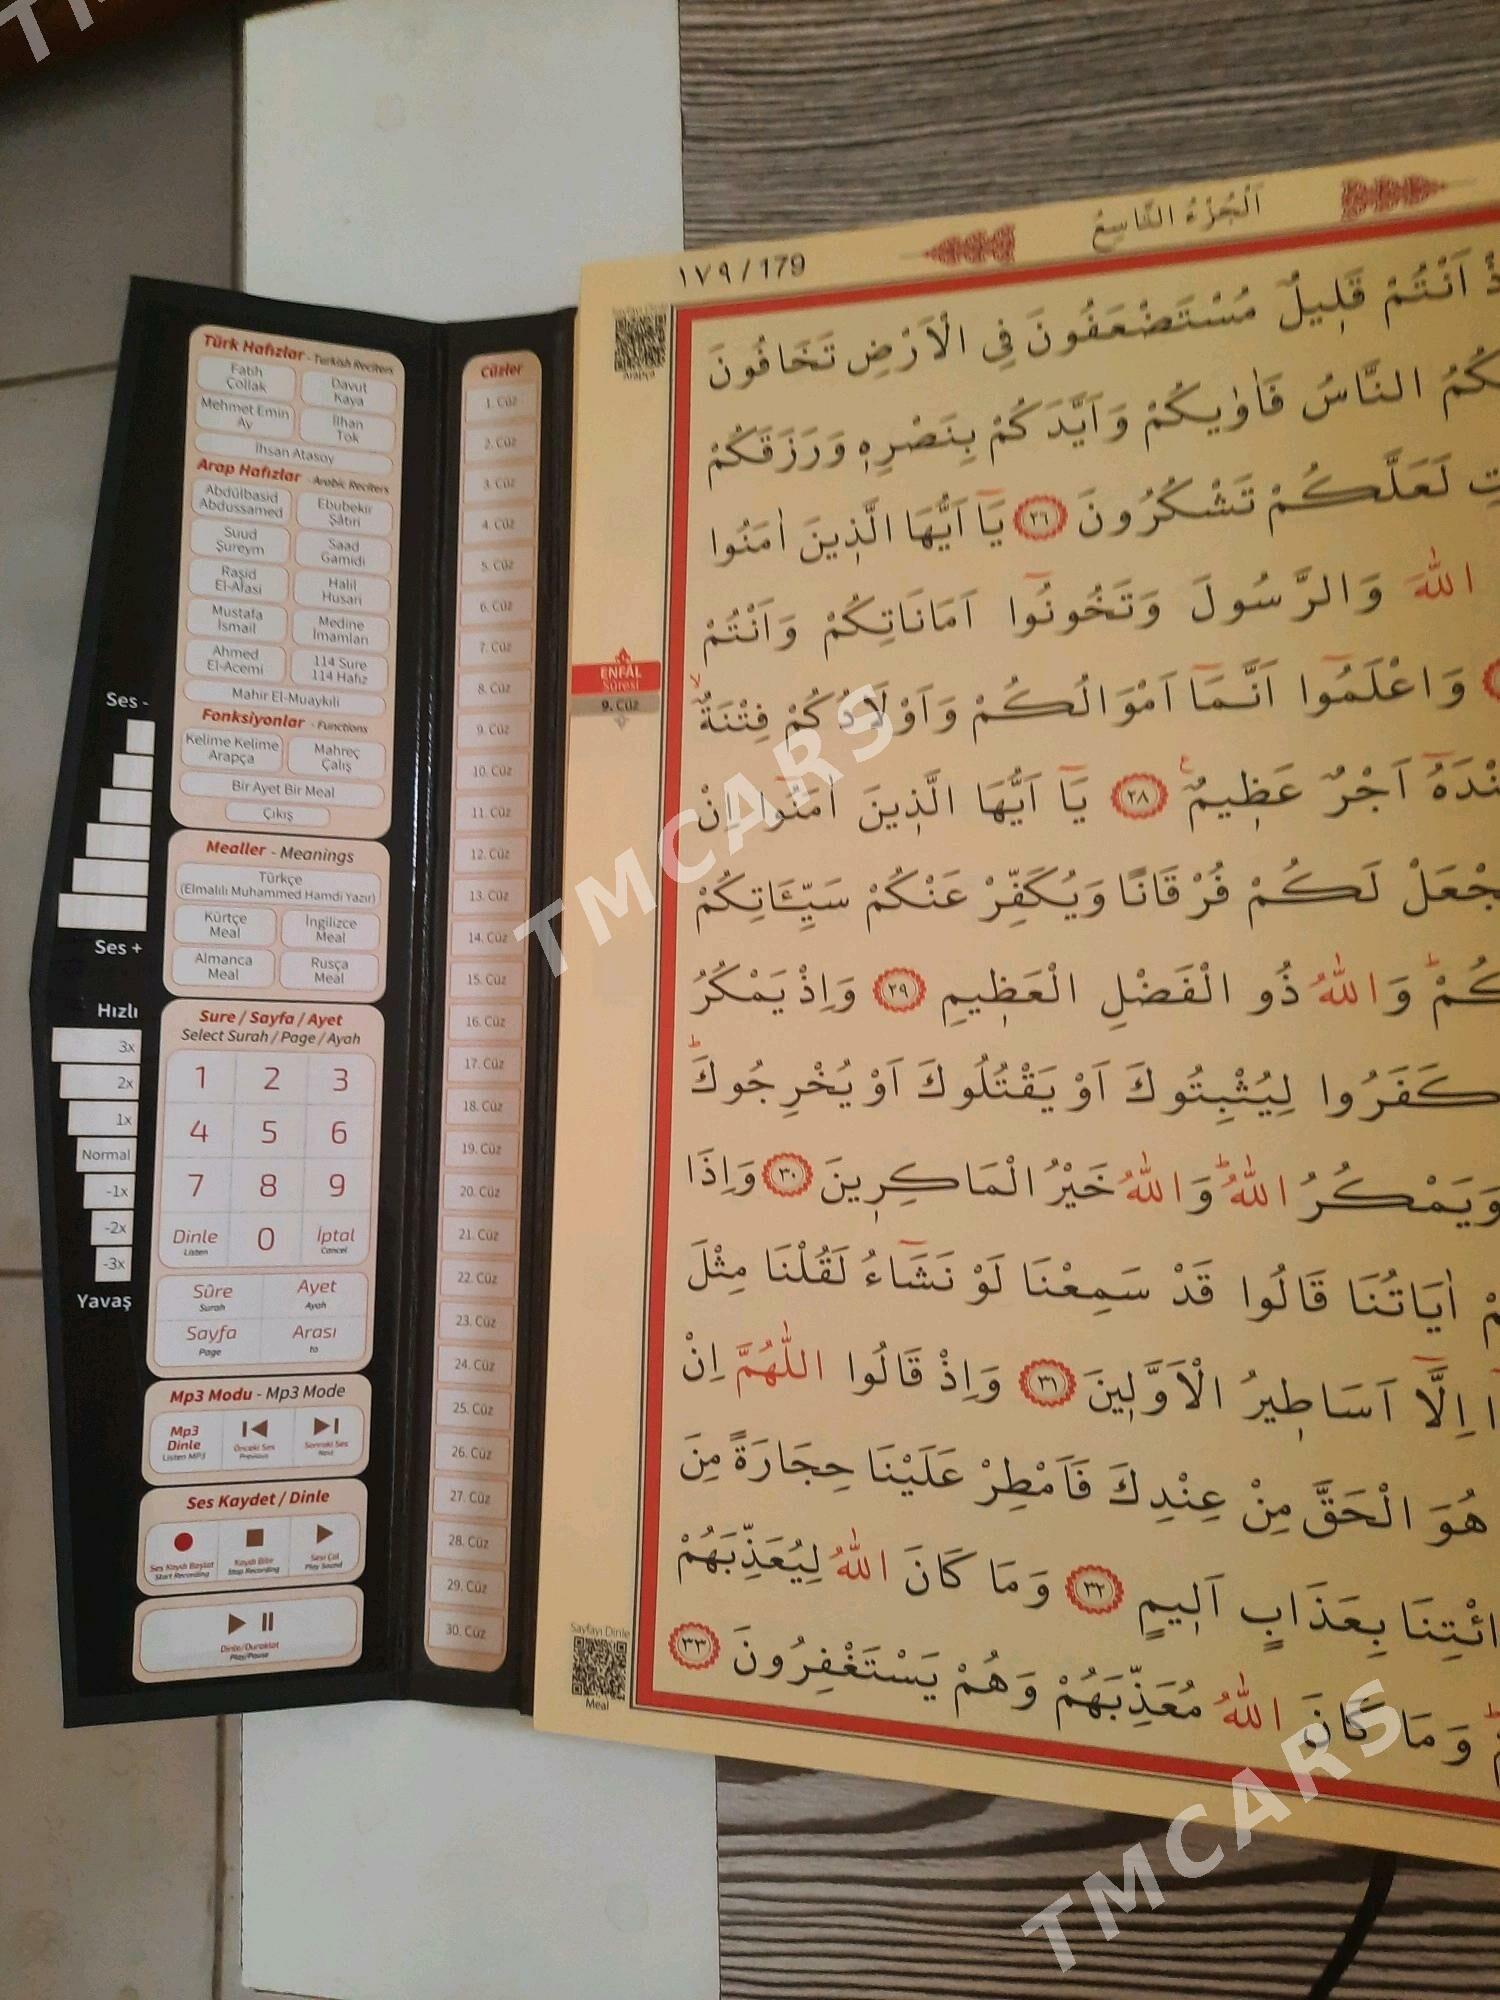 TMCARS
Türk Hafızlar - Turkish Reciters
Fatih Çollak
Davut Kaya
Mehmet Emin Ay
İlhan Tok
İhsan Atasoy
Arap Hafızlar - Arabic Reciters
Abdülbasid Abdussamed
Ebubekir Şâtıri
Suud Şureym
Saad Gamidi
Raşid El-Afasi
Halil Husari
Mustafa İsmail
Medine İmamları
Ahmed El-Acemi
114 Sure 114 Hafız
Mahir El-Muaykili
Fonksiyonlar - Functions
Kelime Kelime Arapça
Mahreç Çalış
Bir Ayet Bir Meal
Çıkış
Mealler - Meanings
Türkçe
(Elmalılı Muhammed Hamdi Yazır)
Kürtçe Meal
İngilizce Meal
Almanca Meal
Rusça Meal
Sure / Sayfa / Ayet
Select Surah / Page / Ayah
1 2 3
4 5 6
7 8 9
Dinle 0 İptal
Listen Cancel
Sûre Ayet
Surah Ayah
Sayfa Arası
Page to
Mp3 Modu - Mp3 Mode
Mp3 Dinle
Listen MP3
Önceki Ses
Previous
Sonraki Ses
Next
Ses Kaydet / Dinle
Ses Kaydı Başlat
Start Recording
Kaydı Bitir
Stop Recording
Sesi Çal
Play Sound
Dinle/Duraklat
Play/Pause
Ses -
Ses +
Hızlı
3x
2x
1x
Normal
-1x
-2x
-3x
Yavaş
Cüzler
1. Cüz
2. Cüz
3. Cüz
4. Cüz
5. Cüz
6. Cüz
7. Cüz
8. Cüz
9. Cüz
10. Cüz
11. Cüz
12. Cüz
13. Cüz
14. Cüz
15. Cüz
16. Cüz
17. Cüz
18. Cüz
19. Cüz
20. Cüz
21. Cüz
22. Cüz
23. Cüz
24. Cüz
25. Cüz
26. Cüz
27. Cüz
28. Cüz
29. Cüz
30. Cüz
١٧٩ / 179
اَلْجُزْءُ التَّاسِعُ
Sayfayı Dinle
Arapça
ENFÂL
Sûresi
9. Cüz
Sayfayı Dinle
Meal
اَنْتُمْ قَلِيلٌ مُسْتَضْعَفُونَ فِي الْاَرْضِ تَخَافُونَ
النَّاسُ فَاٰوٰيكُمْ وَاَيَّدَكُمْ بِنَصْرِهٖ وَرَزَقَكُمْ
لَعَلَّكُمْ تَشْكُرُونَ ٢٦ يَٓا اَيُّهَا الَّذِينَ اٰمَنُوا
اللّٰهَ وَالرَّسُولَ وَتَخُونُٓوا اَمَانَاتِكُمْ وَاَنْتُمْ
وَاعْلَمُٓوا اَنَّمَٓا اَمْوَالُكُمْ وَاَوْلَادُكُمْ فِتْنَةٌۙ
اَجْرٌ عَظِيمٌ ٢٨ يَٓا اَيُّهَا الَّذِينَ اٰمَنُٓوا اِنْ
لَكُمْ فُرْقَانًا وَيُكَفِّرْ عَنْكُمْ سَيِّـَٔاتِكُمْ
وَاللّٰهُ ذُو الْفَضْلِ الْعَظِيمِ ٢٩ وَاِذْ يَمْكُرُ
كَفَرُوا لِيُثْبِتُوكَ اَوْ يَقْتُلُوكَ اَوْ يُخْرِجُوكَۜ
وَيَمْكُرُ اللّٰهُۜ وَاللّٰهُ خَيْرُ الْمَاكِرِينَ ٣٠ وَاِذَا
اٰيَاتُنَا قَالُوا قَدْ سَمِعْنَا لَوْ نَشَٓاءُ لَقُلْنَا مِثْلَ
اِلَّٓا اَسَاطِيرُ الْاَوَّلِينَ ٣١ وَاِذْ قَالُوا اللّٰهُمَّ اِنْ
هُوَ الْحَقَّ مِنْ عِنْدِكَ فَاَمْطِرْ عَلَيْنَا حِجَارَةً مِنَ
بِعَذَابٍ اَلِيمٍ ٣٢ وَمَا كَانَ اللّٰهُ لِيُعَذِّبَهُمْ
وَمَا كَانَ اللّٰهُ مُعَذِّبَهُمْ وَهُمْ يَسْتَغْفِرُونَ ٣٣
TMCARS
TMCARS